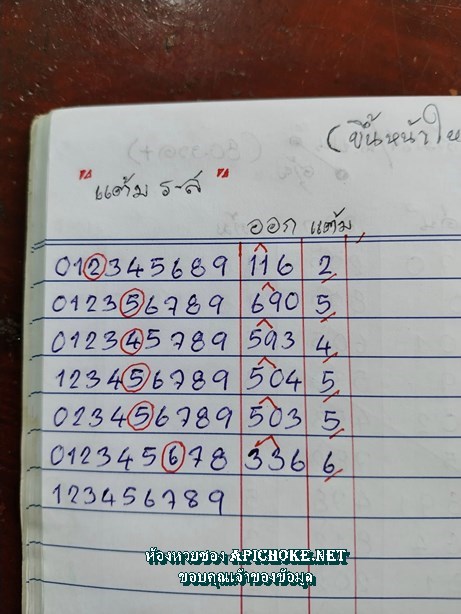 (ขึ้นหน้าให
"แต้ม ร-ส"
ออก แต้ม
012345689 116 2
012356789 690 5
012345789 593 4
123456789 504 5
023456789 503 5
012345678 336 6
123456789
ห้องหวยซอง APICHOKE.NET
ขอบคุณเจ้าของข้อมูล